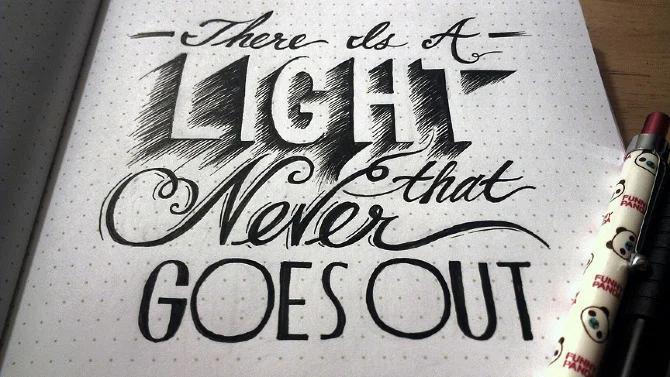 There Is A
LIGHT
that
Never
GOES OUT
FUNNY
PANDA
FUNNY
PANDA
FUNNY
PANDA